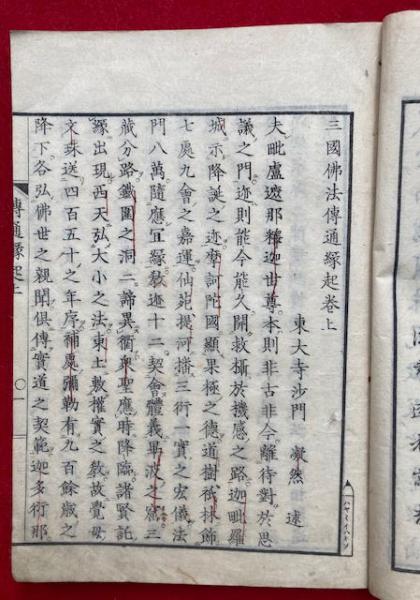 三國佛法傳通縁起卷上
東大寺沙門 凝然 述
大毗盧遮那釋迦世尊本則非古非今離待對於思
議之門迹則能今能久開救撕於機感之路迦毗羅
城示降誕之迹摩訶陀國顯果極之德道樹祇林飾
七處九會之嘉運仙苑提河搆三術一實之宏儀法
門八萬隨應冝縁教迹十二契會體義畢波之窟三
藏分路鐵圍之洞二諦異衢衆聖應時降臨諸賢託
縁出現西天弘大小之法東土敷權實之教故覺母
文殊送四百五十之年序補處彌勒有九百餘歲之
降下各弘佛世之親聞倶傳實道之契範迦多衍那
傳通縁起上 〇一